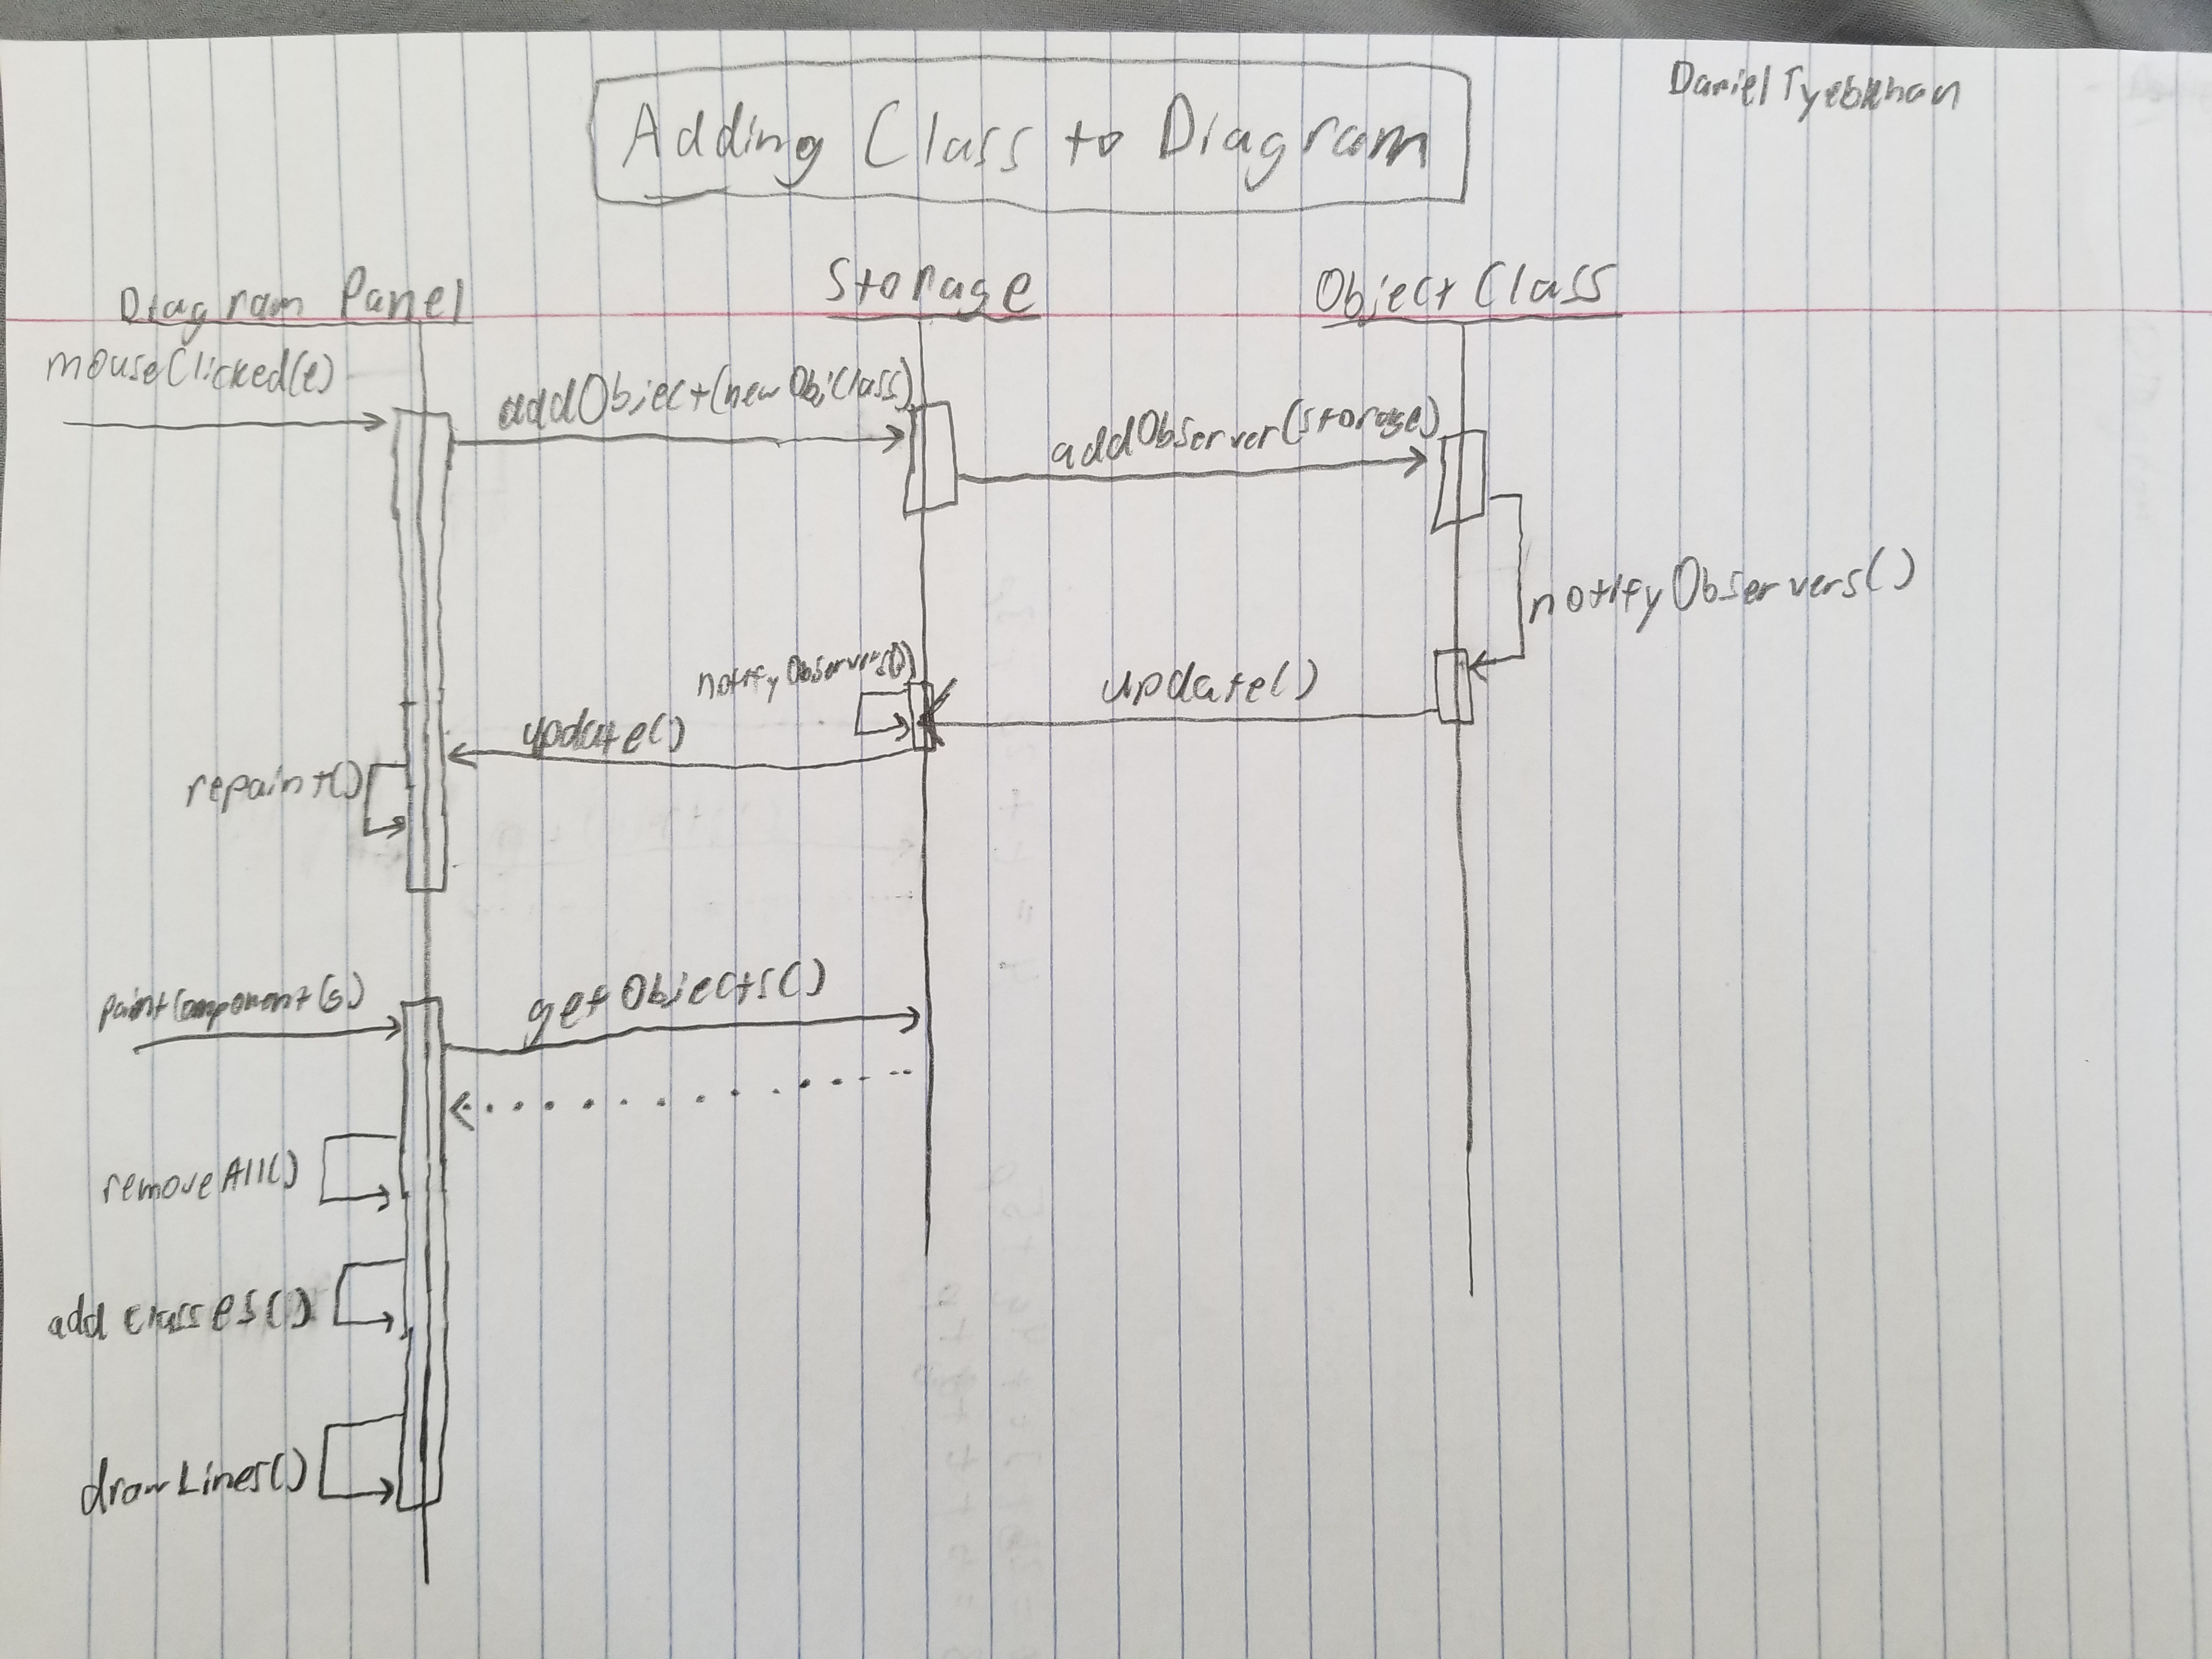 Daniel Tyebkhan
Adding Class to Diagram
Diagram Panel
Storage
Object Class
mouseClicked(e)
addObject(newObjClass)
addObserver(storage)
notifyObservers()
notifyObservers()
update()
update()
repaint()
paintComponent(g)
getObjects()
removeAll()
addClasses()
drawLines()